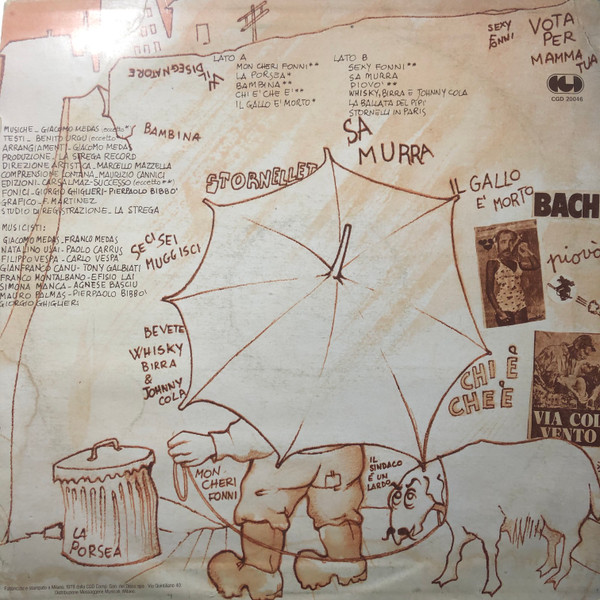 IL DISEGNATORE
LATO A
MON CHERI FONNI**
LA PORSEA*
BAMBINA**
CHI E' CHE E'**
IL GALLO E' MORTO*
LATO B
SEXY FONNI**
SA MURRA
PIOVO'**
WHISKY, BIRRA E JOHNNY COLA
LA BALLATA DEL PIPI
STORNELLI IN PARIS
SEXY
FONNI
VOTA
PER
MAMMA
TUA
CGD
CGD 20046
MUSICHE_ GIACOMO MEDAS (eccetto*)
TESTI_ BENITO URGU (eccetto
ARRANGIAMENTI_ GIACOMO MEDAS
PRODUZIONE_ LA STREGA RECORD
DIREZIONE ARTISTICA_ MARCELLO MAZZELLA
COMPRENSIONE LONTANA_ MAURIZIO CANNICI
EDIZIONI_ CARSALMAZ-SUCCESSO (eccetto**)
FONICI_ GIORGIO GHIGLIERI-PIERPAOLO BIBBO'
GRAFICO_ F. MARTINEZ
STUDIO DI REGISTRAZIONE_ LA STREGA
MUSICISTI:
GIACOMO MEDAS_FRANCO MEDAS
NATALINO USAI-PAOLO CARRUS
FILIPPO VESPA_ CARLO VESPA
GIANFRANCO CANU-TONY GALBIATI
FRANCO MONTALBANO-EFISIO LAI
SIMONA MANCA_ AGNESE BASCIU
MAURO PALMAS-PIERPAOLO BIBBO'
GIORGIO GHIGLIERI
BAMBINA
SA
MURRA
STORNELLET
IL GALLO
E' MORTO
BACH
piovò
SE CI SEI
MUGGISCI
BEVETE
WHISKY
BIRRA
&
JOHNNY
COLA
CHI È
CHE È
VIA COL
VENTO
MON
CHERI
FONNI
IL
SINDACO
É UN
LARDO
LA
PORSEA